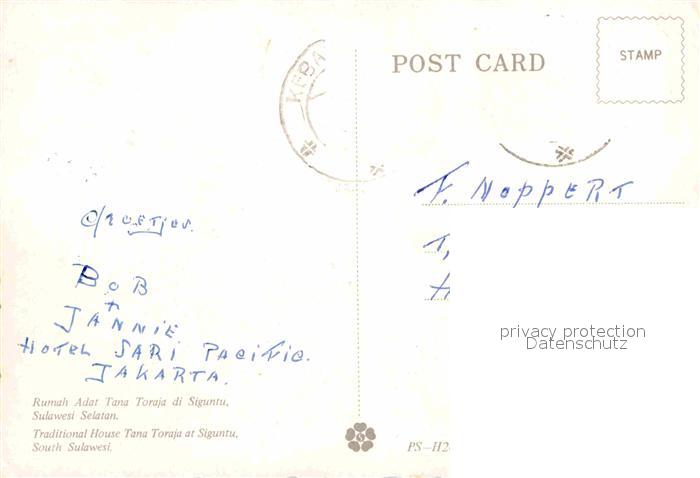 KEBA
POST CARD
STAMP
F. NOPPERT
T,
H
Groetjes.
BOB
+
JANNIE
HOTEL SARI PACIFIC.
JAKARTA.
Rumah Adat Tana Toraja di Siguntu,
Sulawesi Selatan.
Traditional House Tana Toraja at Siguntu,
South Sulawesi.
PS-H2
privacy protection
Datenschutz